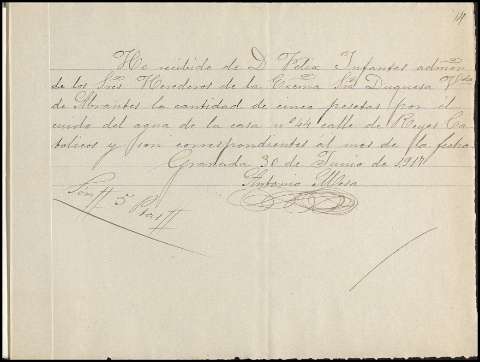 He recibido de D Felix Infantes admon
de los Sres Herederos de la Excma Sra Duquesa Vda
de Abrantes la cantidad de cinco pesetas por el
cuido del agua de la casa nº 44 calle de Reyes Ca
tolicos y son correspondientes al mes de la fecha
Granada 30 de Junio de
Antonio
Son 5 Ptas